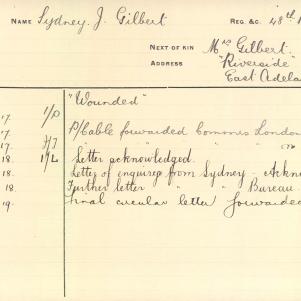 NAME Sydney. J. Gilbert REG. &C. 48th
NEXT OF KIN Mrs Gilbert.
ADDRESS "Riverside"
East Adela
"Wounded"
17. 1/D P/Cable forwarded Commns London
17. " " "
18. 1/L Letter acknowledged.
18. Letter of enquiry from Sydney - Ackn
18. Further letter " " Bureau
19. Final circular letter forwarded